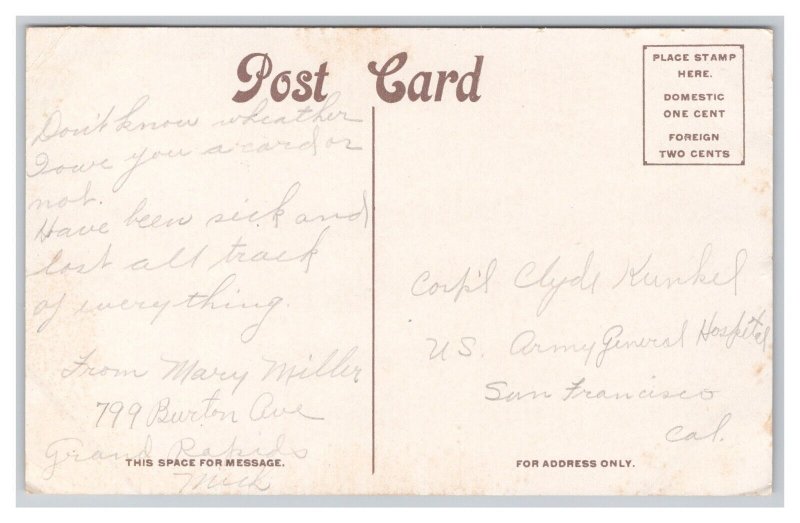 Post Card
PLACE STAMP
HERE.
DOMESTIC
ONE CENT
FOREIGN
TWO CENTS
Don't know wheather
I owe you a card or
not.
Have been sick and
lost all track
of everything.
From Mary Miller
799 Burton Ave
Grand Rapids
Mich
THIS SPACE FOR MESSAGE.
Corp'l Clyde Kunkel
U.S. Army General Hospital
San Francisco
Cal.
FOR ADDRESS ONLY.